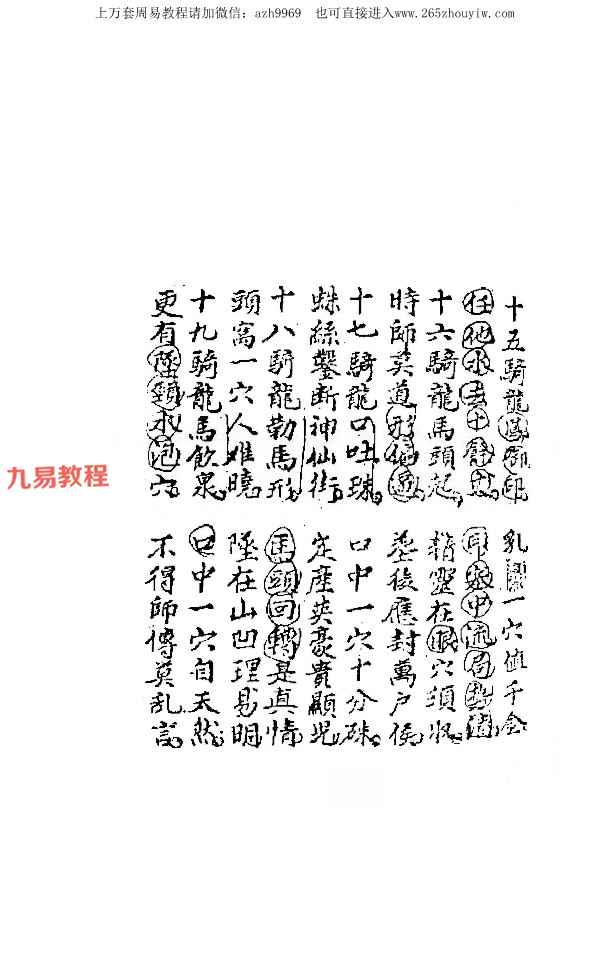 上万套周易教程请加微信：azh9969 也可直接进入www.265zhouyiw.com
十五騎龍鳳啣印 乳 一穴值千金
任他水去十
十六騎龍馬頭起 精靈在眼穴須收
時師莫道形偏 葬後應封萬戶侯
十七騎龍口吐珠 口中一穴十分硃
蛛絲鑿斷神仙街 定產英豪貴顯児
十八騎龍勒馬形 馬頭回轉是真情
頭窩一穴人难曉 墜在山凹理易明
十九騎龍馬飲泉 口中一穴自天然
更有 穴 不得師傳莫乱言
九易教程